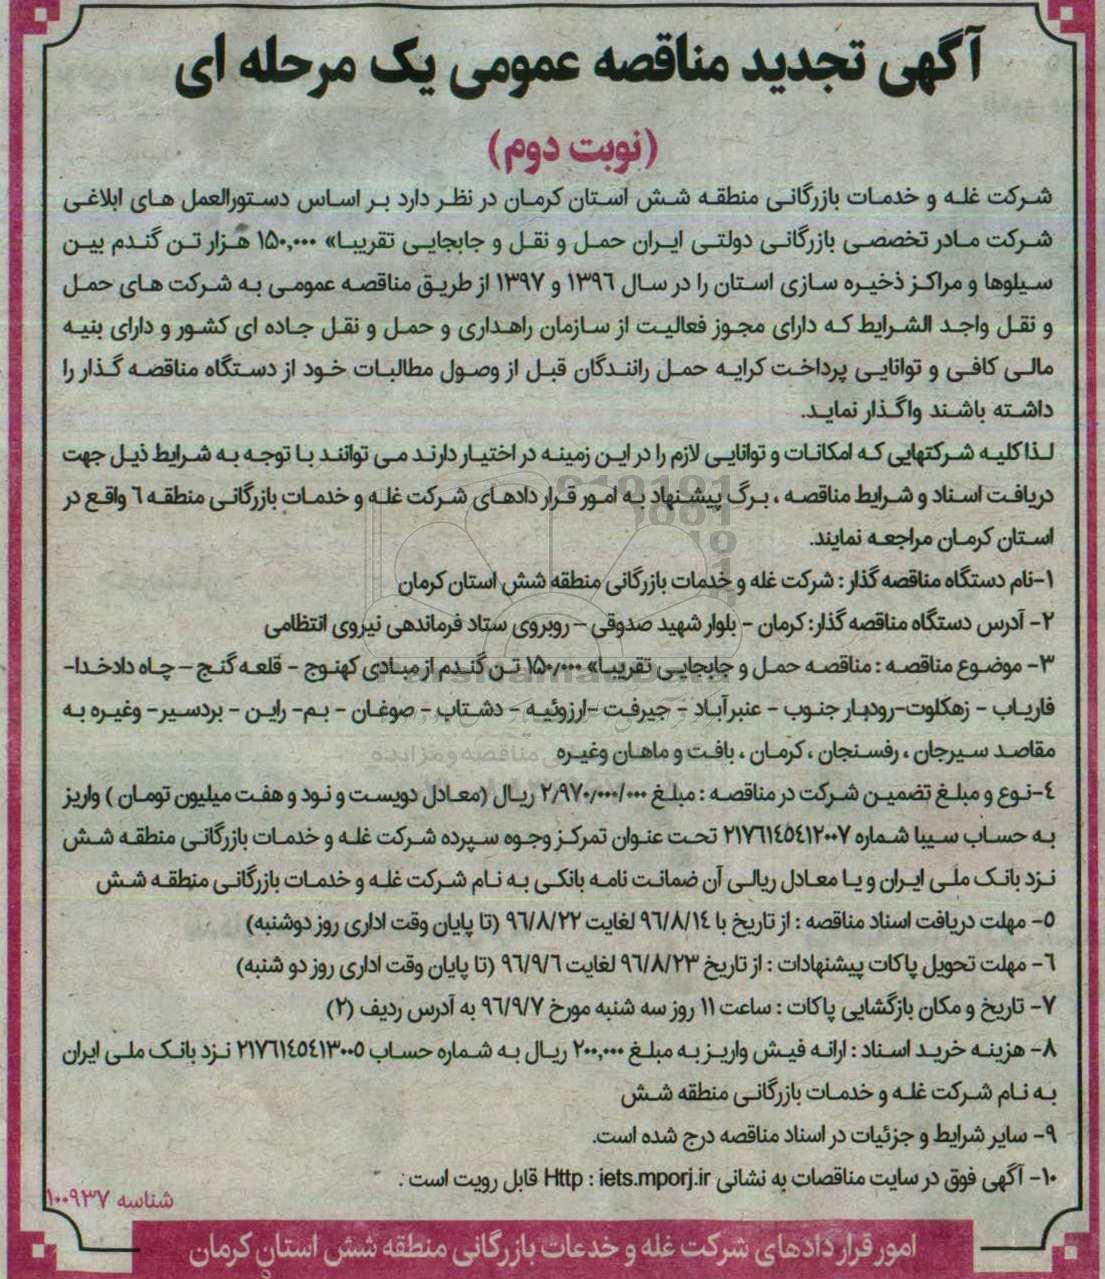 آگهی تجدید مناقصه عمومی یک مرحله ای
(نوبت دوم)
شرکت غله و خدمات بازرگانی منطقه شش استان کرمان در نظر دارد بر اساس دستورالعمل های ابلاغی
شرکت مادر تخصصی بازرگانی دولتی ایران حمل و نقل و جابجایی تقریبا» ۱۵۰,۰۰۰ هزار تن گندم بین
سیلوها و مراکز ذخیره سازی استان را در سال ۱۳۹۶ و ۱۳۹۷ از طریق مناقصه عمومی به شرکت های حمل
و نقل واجد الشرایط که دارای مجوز فعالیت از سازمان راهداری و حمل و نقل جاده ای کشور و دارای بنیه
مالی کافی و توانایی پرداخت کرایه حمل رانندگان قبل از وصول مطالبات خود از دستگاه مناقصه گذار را
داشته باشند واگذار نماید.
لذا کلیه شرکتهایی که امکانات و توانایی لازم را در این زمینه در اختیار دارند می توانند با توجه به شرایط ذیل جهت
دریافت اسناد و شرایط مناقصه ، برگ پیشنهاد به امور قرار دادهای شرکت غله و خدمات بازرگانی منطقه ۶ واقع در
استان کرمان مراجعه نمایند.
۱-نام دستگاه مناقصه گذار : شرکت غله و خدمات بازرگانی منطقه شش استان کرمان
۲- آدرس دستگاه مناقصه گذار: کرمان - بلوار شهید صدوقی – روبروی ستاد فرماندهی نیروی انتظامی
۳- موضوع مناقصه : مناقصه حمل و جابجایی تقریبا» ۱۵۰/۰۰۰ تن گندم از مبادی کهنوج - قلعه گنج – چاه دادخدا-
فاریاب - زهکلوت-رودبار جنوب - عنبرآباد - جیرفت -ارزوئیه - دشتاب - صوغان - بم- راین - بردسیر- وغیره به
مقاصد سیرجان ، رفسنجان ، کرمان ، بافت و ماهان وغیره
۴-نوع و مبلغ تضمین شرکت در مناقصه : مبلغ ۲/۹۷۰/۰۰۰/۰۰۰ ریال (معادل دویست و نود و هفت میلیون تومان ) واریز
به حساب سیبا شماره ۲۱۷۶۱۴۵۴۱۲۰۰۷ تحت عنوان تمرکز وجوه سپرده شرکت غله و خدمات بازرگانی منطقه شش
نزد بانک ملی ایران و یا معادل ریالی آن ضمانت نامه بانکی به نام شرکت غله و خدمات بازرگانی منطقه شش
۵- مهلت دریافت اسناد مناقصه : از تاریخ با ۹۶/۸/۱۴ لغایت ۹۶/۸/۲۲ (تا پایان وقت اداری روز دوشنبه)
۶- مهلت تحویل پاکات پیشنهادات : از تاریخ ۹۶/۸/۲۳ لغایت ۹۶/۹/۶ (تا پایان وقت اداری روز دو شنبه)
۷- تاریخ و مکان بازگشایی پاکات : ساعت ۱۱ روز سه شنبه مورخ ۹۶/۹/۷ به آدرس ردیف (۲)
۸- هزینه خرید اسناد : ارائه فیش واریز به مبلغ ۲۰۰,۰۰۰ ریال به شماره حساب ۲۱۷۶۱۴۵۴۱۳۰۰۵ نزد بانک ملی ایران
به نام شرکت غله و خدمات بازرگانی منطقه شش
۹- سایر شرایط و جزئیات در اسناد مناقصه درج شده است.
۱۰- آگهی فوق در سایت مناقصات به نشانی Http : iets.mporj.ir قابل رویت است .
شناسه ۱۰۰۹۳۷
امور قرار دادهای شرکت غله و خدمات بازرگانی منطقه شش استان کرمان